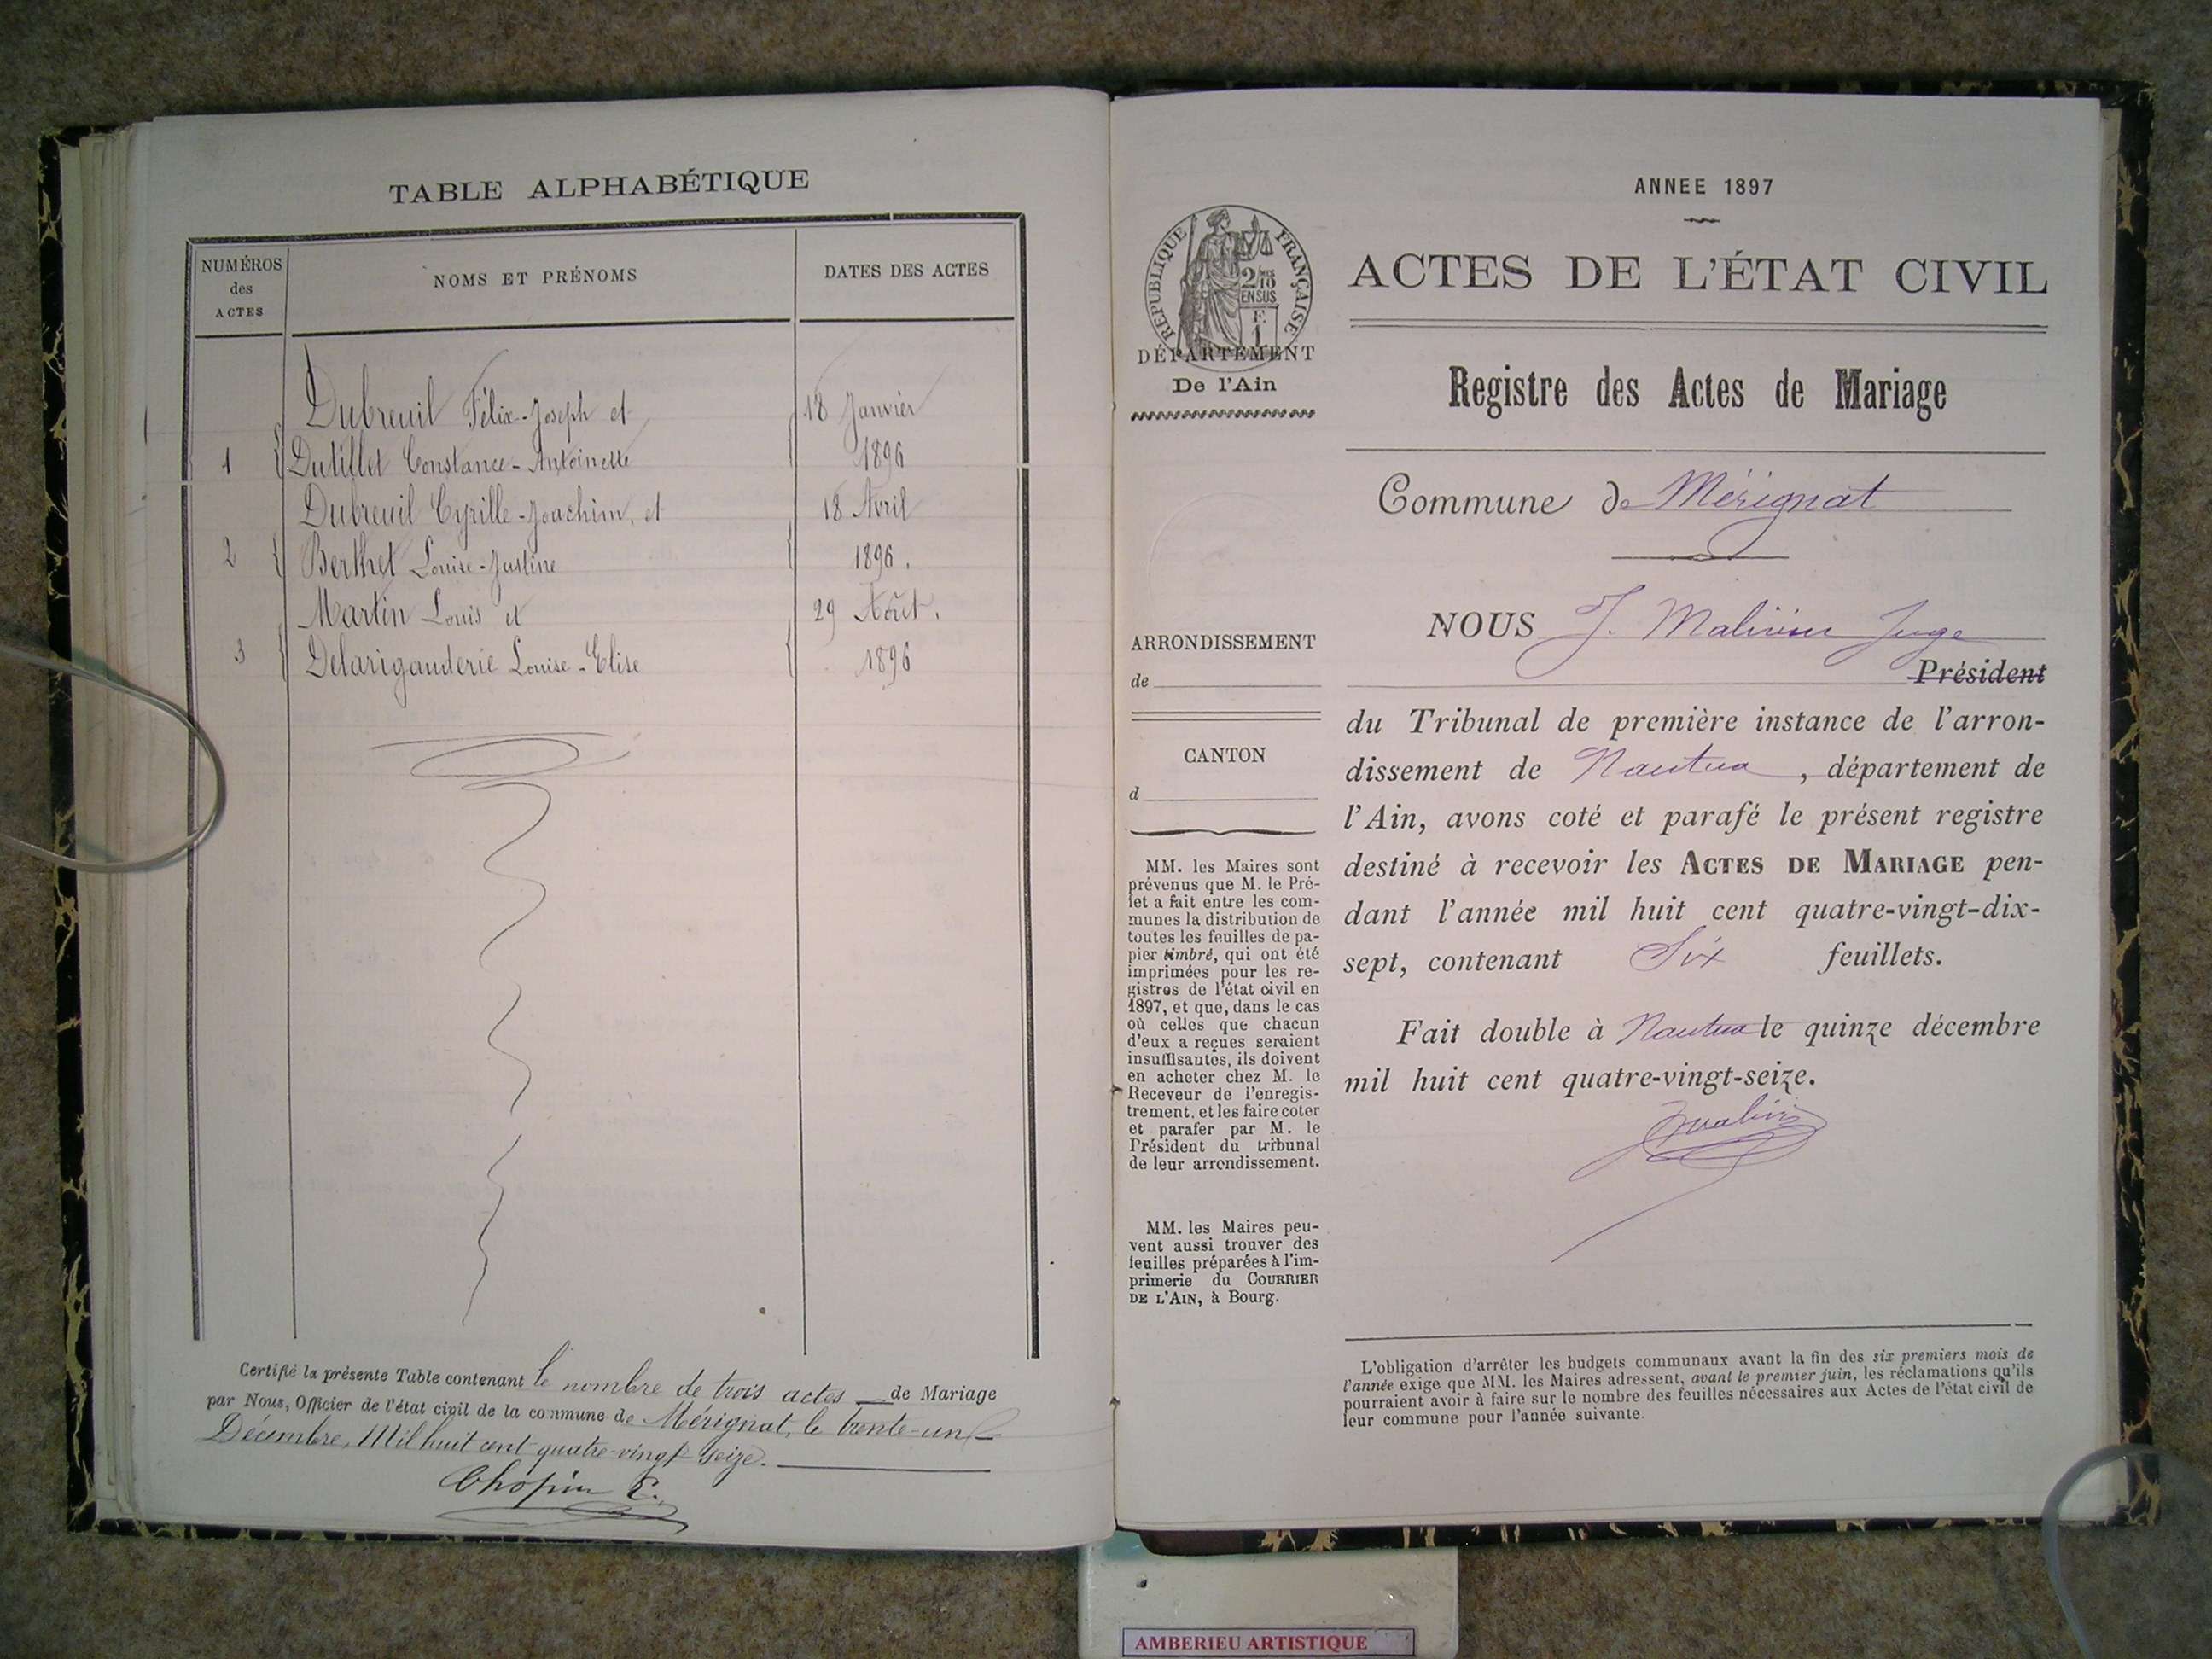 TABLE ALPHABÉTIQUE
NUMÉROS
des
ACTES
NOMS ET PRÉNOMS
DATES DES ACTES
Dubreuil Félix-Joseph et
18 Janvier
1
Dutillet Constance-Antoinette
1896
Dubreuil Cyrille-Joachim, et
18 Avril
2
Berthet Louise-Justine
1896.
Martin Louis et
29 Août.
3
Delariganderie Louise-Elise
1896
Certifié la présente Table contenant le nombre de trois actes de Mariage
par Nous, Officier de l'état civil de la commune de Mérignat, le trente-un
Décembre, Mil huit cent quatre-vingt seize.
Chopin C.
ANNEE 1897
RÉPUBLIQUE FRANÇAISE
2/10
EN SUS
F.
1
DÉPARTEMENT
De l'Ain
ACTES DE L'ÉTAT CIVIL
Registre des Actes de Mariage
Commune de Mérignat
ARRONDISSEMENT
de
CANTON
d
MM. les Maires sont
prévenus que M. le Pré-
fet a fait entre les com-
munes la distribution de
toutes les feuilles de pa-
pier timbré, qui ont été
imprimées pour les re-
gistres de l'état civil en
1897, et que, dans le cas
où celles que chacun
d'eux a reçues seraient
insuffisantes, ils doivent
en acheter chez M. le
Receveur de l'enregis-
trement, et les faire coter
et parafer par M. le
Président du tribunal
de leur arrondissement.
MM. les Maires peu-
vent aussi trouver des
feuilles préparées à l'im-
primerie du COURRIER
DE L'AIN, à Bourg.
NOUS J. Juge
Président
du Tribunal de première instance de l'arron-
dissement de Nantua, département de
l'Ain, avons coté et parafé le présent registre
destiné à recevoir les ACTES DE MARIAGE pen-
dant l'année mil huit cent quatre-vingt-dix-
sept, contenant Six feuillets.
Fait double à Nantua le quinze décembre
mil huit cent quatre-vingt-seize.
L'obligation d'arrêter les budgets communaux avant la fin des six premiers mois de
l'année exige que MM. les Maires adressent, avant le premier juin, les réclamations qu'ils
pourraient avoir à faire sur le nombre des feuilles nécessaires aux Actes de l'état civil de
leur commune pour l'année suivante.
AMBERIEU ARTISTIQUE